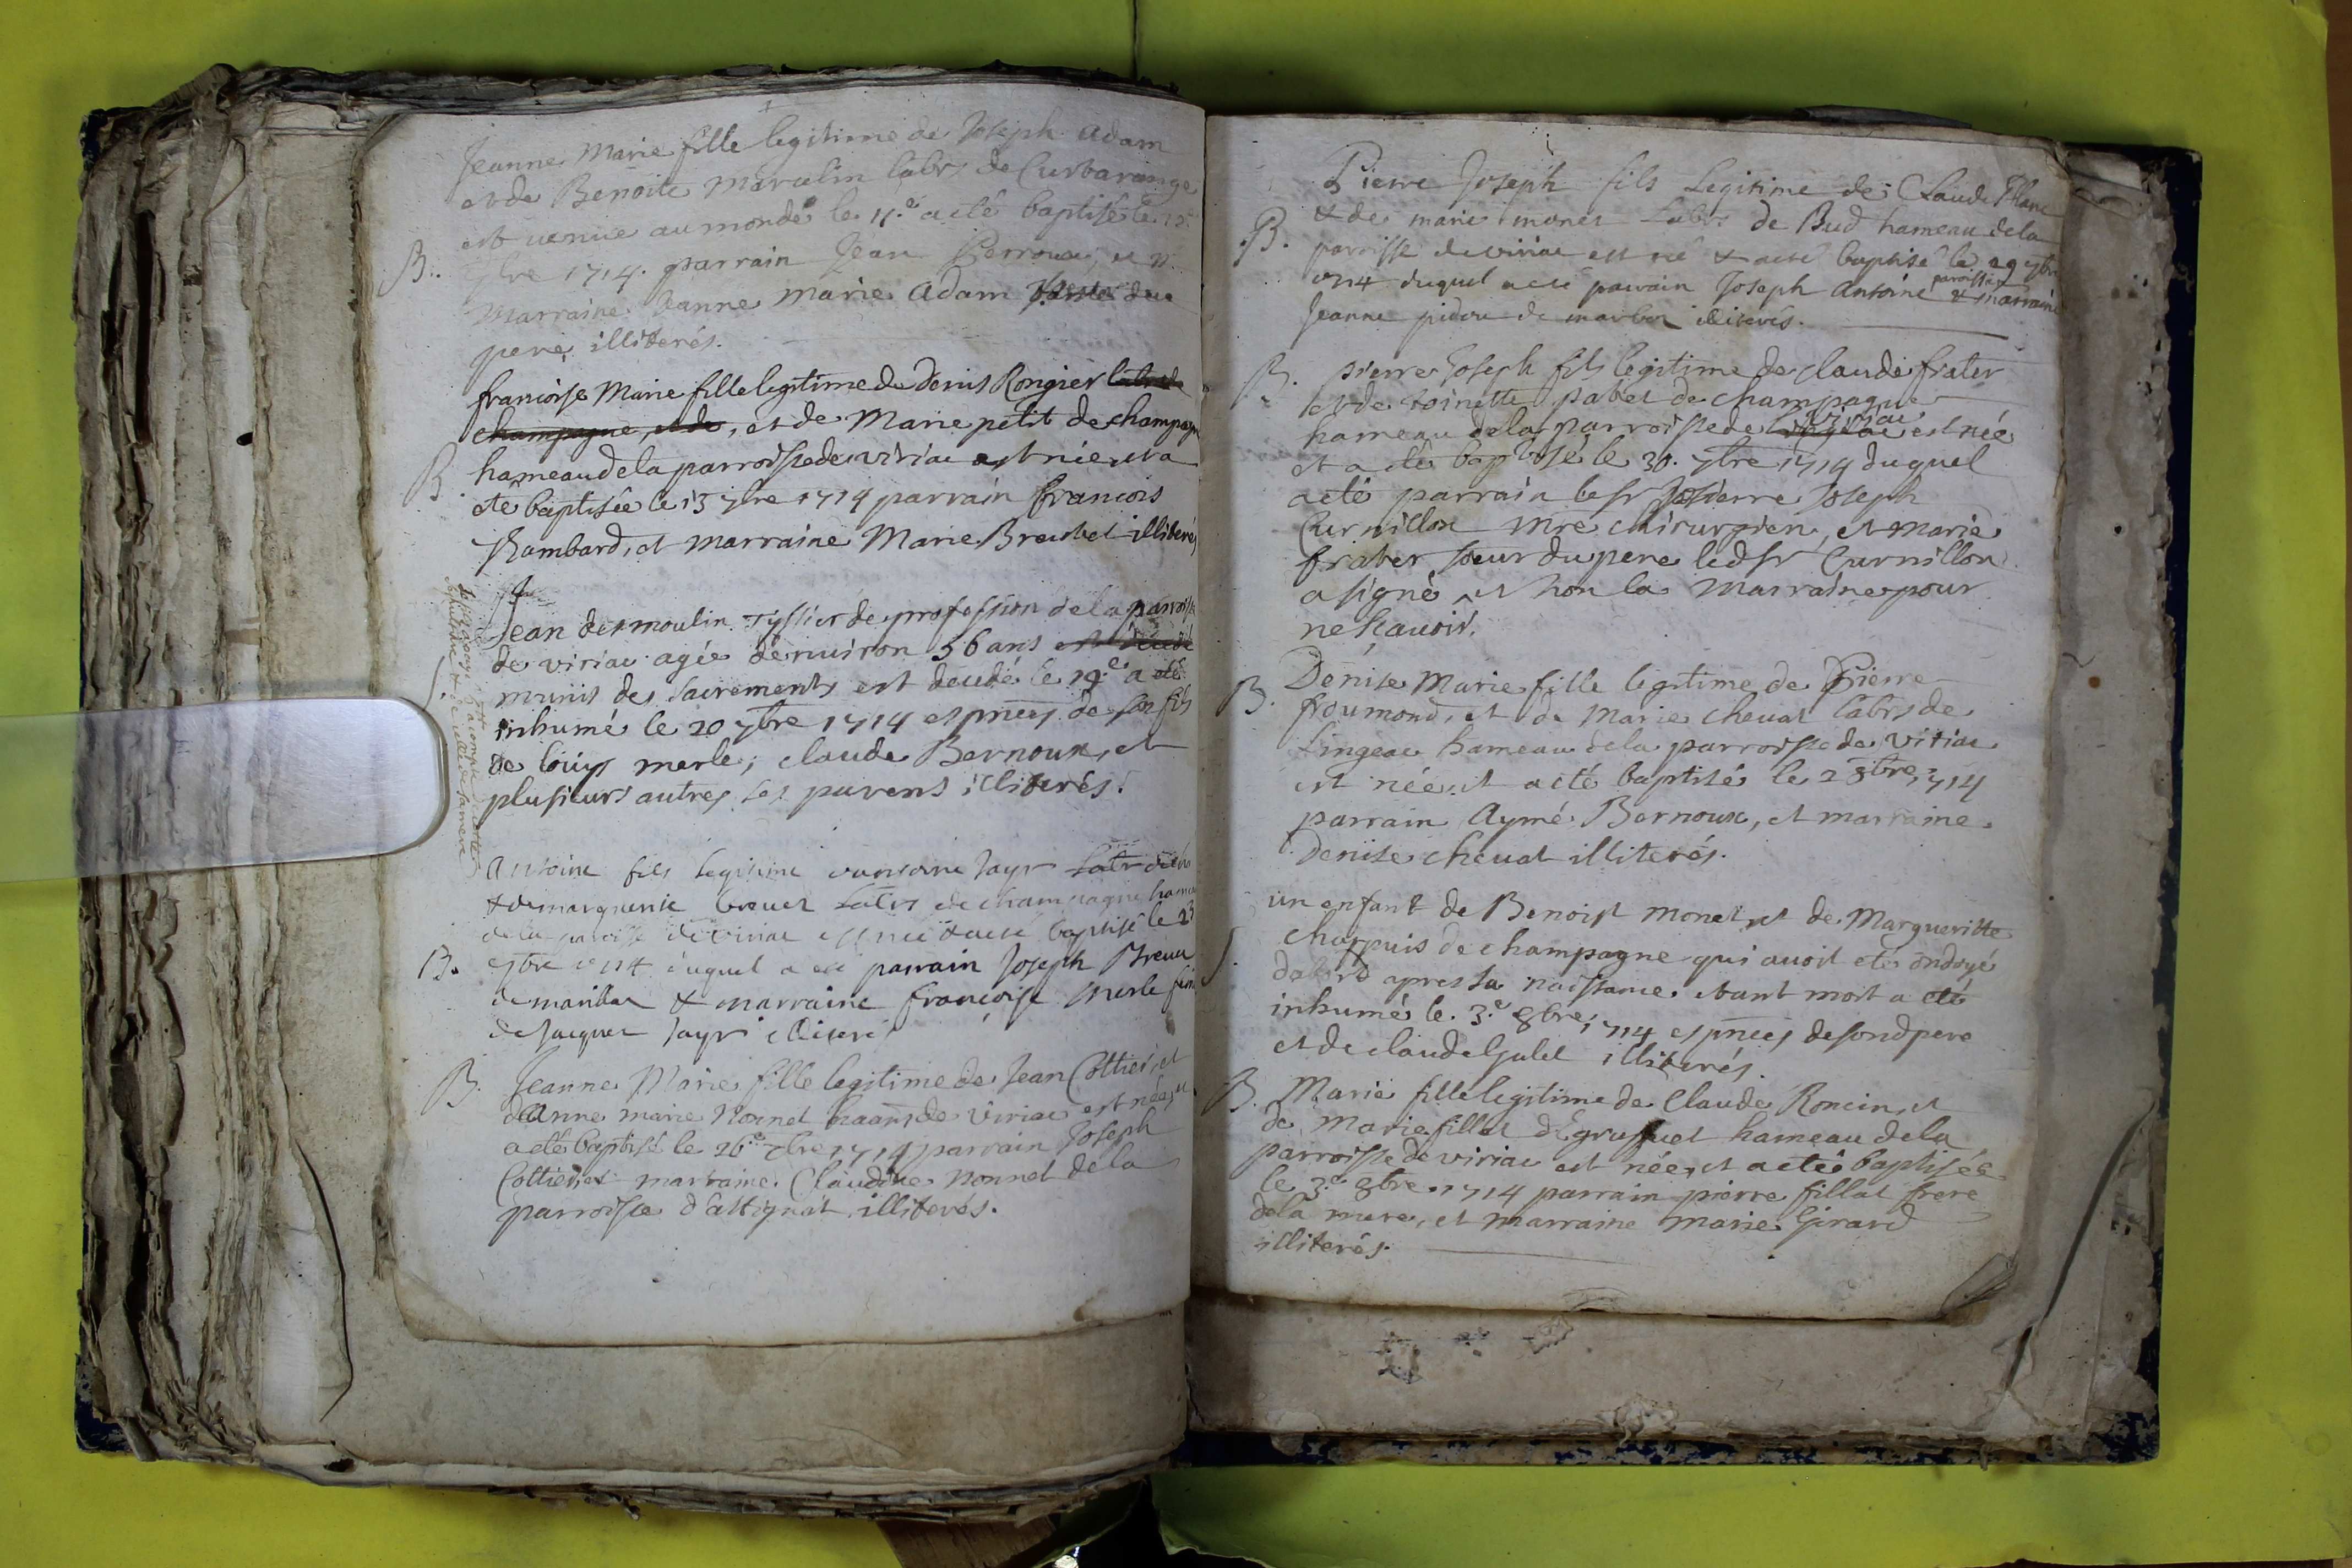 Jeanne Marie fille legitime de Joseph Adam
et de Benoite Marculin labrs de Curtaringe
est venue au monde le 11.e a eté baptisé le 12.e
B. 7bre 1714. parrain Jean Perroux, et
marraine Jeanne Marie Adam du
pere illiterés.
francoise Marie fille legitime de Denis Rongier
champagne, et de, et de Marie petit de champagne
B. hameau de la parroisse de viriac est née, et a
eté baptisée le 13 7bre 1714 parrain francois
Rambard, et marraine Marie Breuhet illiterés
Jean desmoulin Tissier de profession de la parroisse
de viriac agée d'environ 56 ans est décédé
S. munis des sacrements est decedé le 19.e a eté
inhumé le 20 7bre 1714 es pnces de son fils
de loüys merle, claude Bernoux, et
plusieurs autres ses parens illiterés.
Antoine fils legitime dantoine Jayr
& de marguerite breuet labrs de champagne hameau
de la paroisse de viriac est née & a eté baptisé le 23
B. 7bre 1714 duquel a eté parrain Joseph Breuet
de maribos & marraine françoise merle feme
de Jacques Jayr illiteré
B. Jeanne Marie fille legitime de Jean Cottier, et
d'Anne marie Nonnet de viriac est née, et
a eté baptisé le 26.e 7bre 1714 parrain Joseph
Cottier, et marraine Claudine Nonnet de la
parroisse d'attignat illiterés.
Pierre Joseph fils Legitime de Claude Blanc
& de marie monet labrs de Bud hameau de la
B. parroisse de viriac est né & a eté baptisé le 29 7bre
1714 duquel a eté parrain Joseph Antoine & marraine
Jeanne pidou de marboz illiterés.
B. pierre Joseph fils legitime de claude frater
et de toinette pabet de champagne
hameau de la parroisse de viriac est née
et a eté baptisé le 30. 7bre 1714 duquel
a eté parrain le sr pierre Joseph
Curnillon mre chirurgien, et marie
frater soeur du pere led sr Curnillon
a signé et non la marraine pour
ne scavoir.
Denise Marie fille legitime de Pierre
B. froumond, et de Marie cheuat labrs de
Lingeac hameau de la parroisse de viriac
est née, et a eté baptisé le 2 8bre 1714
parrain Aymé Bernoux, et marraine
Denise cheuat illiterés.
un enfant de Benoist monet, et de Margueritte
S. chappuis de champagne qui auoit eté ondoyé
dabord apres sa naissance etant mort a eté
inhumé le 3.e 8bre 1714 es pnces de sond pere
et de claude Gulet illiterés.
B. Marie fille legitime de Claude Roncin, et
de Marie fillat hameau de la
parroisse de viriac est née, et a eté baptisée
le 3.e 8bre 1714 parrain pierre fillat frere
de la mere, et marraine Marie Girard
illiterés.